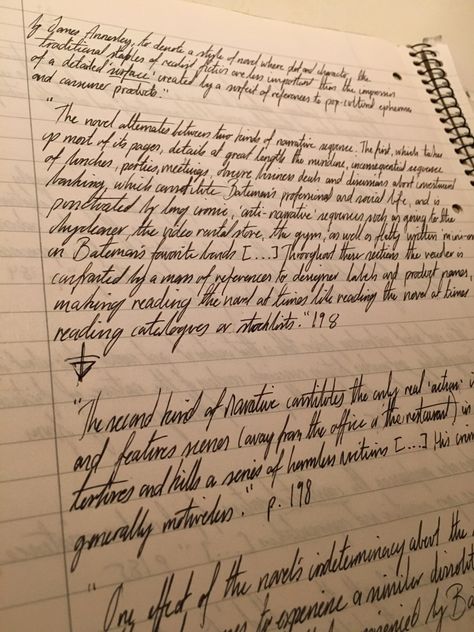 by James Annesley, to denote a style of novel where plot and character, like
traditional staples of realist fiction are less important than the impression
of a detailed 'surface' created by a surfeit of references to pop-cultural ephemera
and consumer products."
"The novel alternates between two kinds of narrative sequence. The first, which takes
up most of its pages, details at great length the mundane, inconsequential sequence
of lunches, parties, meetings, obscure business deals and discussions about investment
banking, which constitute Bateman's professional and social life, and is
punctuated by long ironic, 'anti-narrative' sequences such as going to the
drycleaner, the video rental store, the gym, as well as flatly written mini-
on Bateman's favorite bands [...] Throughout these sections the reader is
confronted by a mass of references to designer labels and product names,
making reading the novel at times like reading the novel at times
reading catalogues or stocklists." 198
"The second kind of narrative constitutes the only real 'action'
and features scenes (away from the office or the restaurant) in
tortures and kills a series of harmless victims [...] His
generally motiveless." p. 198
"One effect of the novel's indeterminacy about the
to experience a similar
by Ba